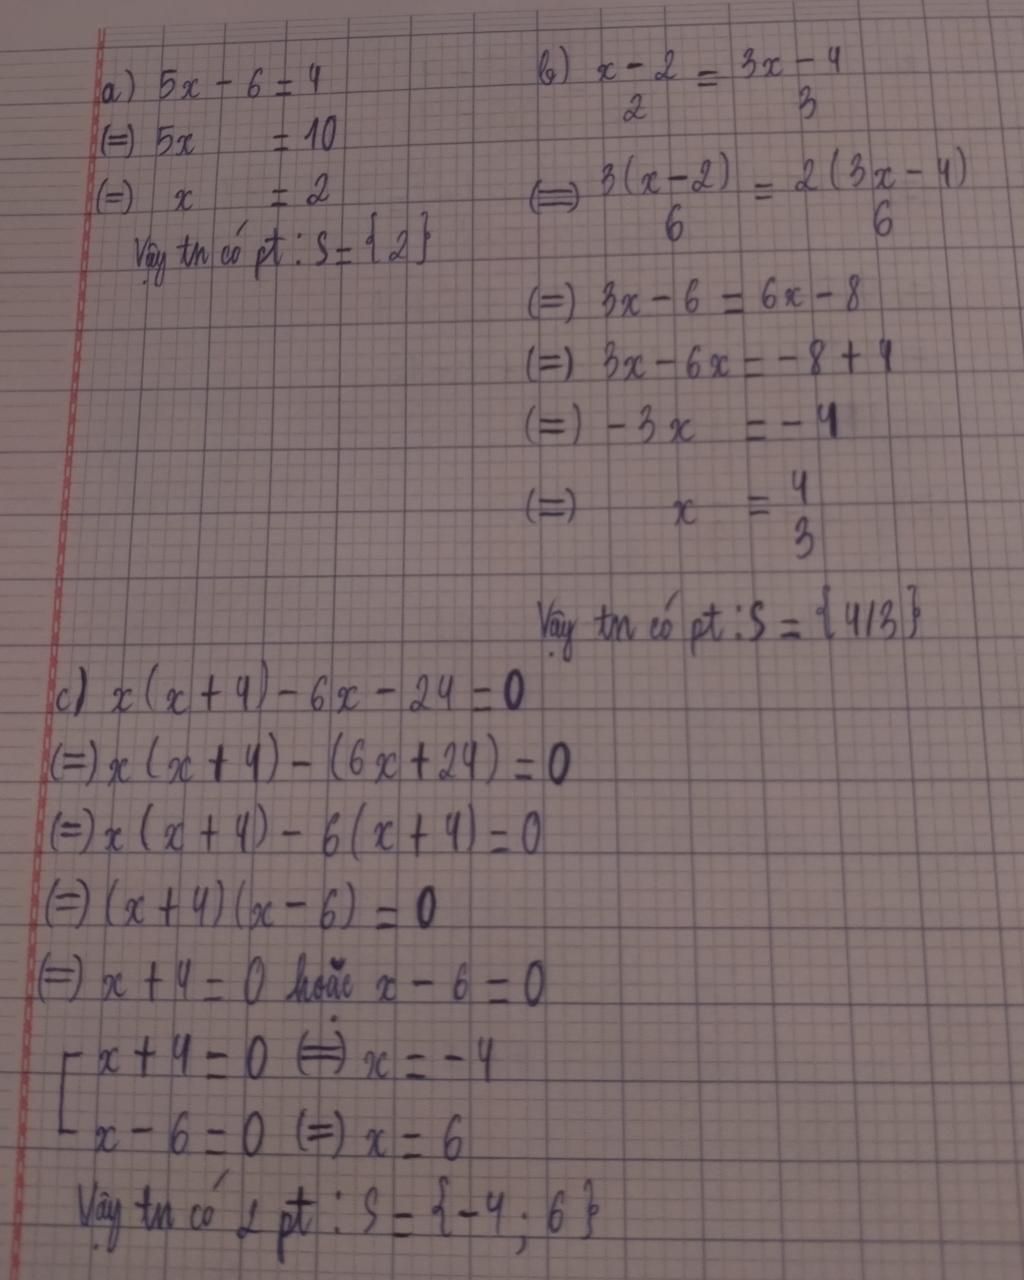 a) 5x - 6 = 4
(=) 5x = 10
(=) x = 2
Vậy tn có pt : S = {2}
b) x - 2 = 3x - 4
2 3
(=) 3(x - 2) = 2(3x - 4)
6 6
(=) 3x - 6 = 6x - 8
(=) 3x - 6x = -8 + 4
(=) -3x = -4
(=) x = 4
3
Vậy tn có pt : S = {4/3}
c) x(x + 4) - 6x - 24 = 0
(=) x(x + 4) - (6x + 24) = 0
(=) x(x + 4) - 6(x + 4) = 0
(=) (x + 4)(x - 6) = 0
(=) x + 4 = 0 hoặc x - 6 = 0
[ x + 4 = 0 (=) x = -4
x - 6 = 0 (=) x = 6
Vậy tn có 2 pt : S = {-4 ; 6}